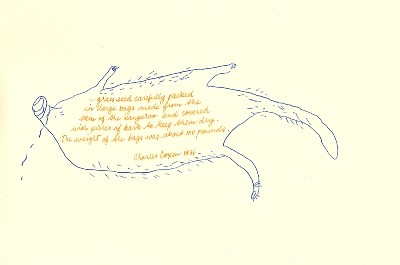 - grass seed carefully packed
in large bags made from the
skin of the kangaroo and covered
with pieces of bark to keep them dry.
The weight of the bags was about 100 pounds.
Charles Coxen 18